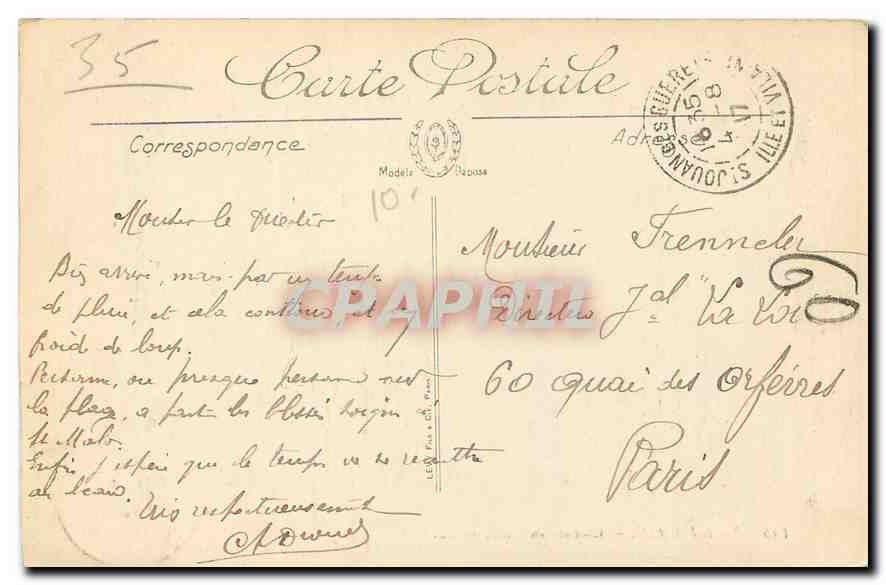 35
Carte Postale
Correspondance
Modèle Déposé
Adresse
ST JOUAN DES GUERETS ILLE ET VILAINE
18 35
8 - 4 17
10.
Monsieur le Directeur
Bien arrivé, mais par un temps
de pluie, et cela continue, et
froid de loup.
Personne, ou presque personne
la plage, à part les blessés soignés
St Malo.
Enfin j'espère que le temps va se remettre
au beau.
Très respectueusement
Monsieur Frenneler
Directeur Jal "La Loi"
60
60 Quai des Orfèvres
Paris
LEVY Fils & Cie, Paris
CPAPHIL